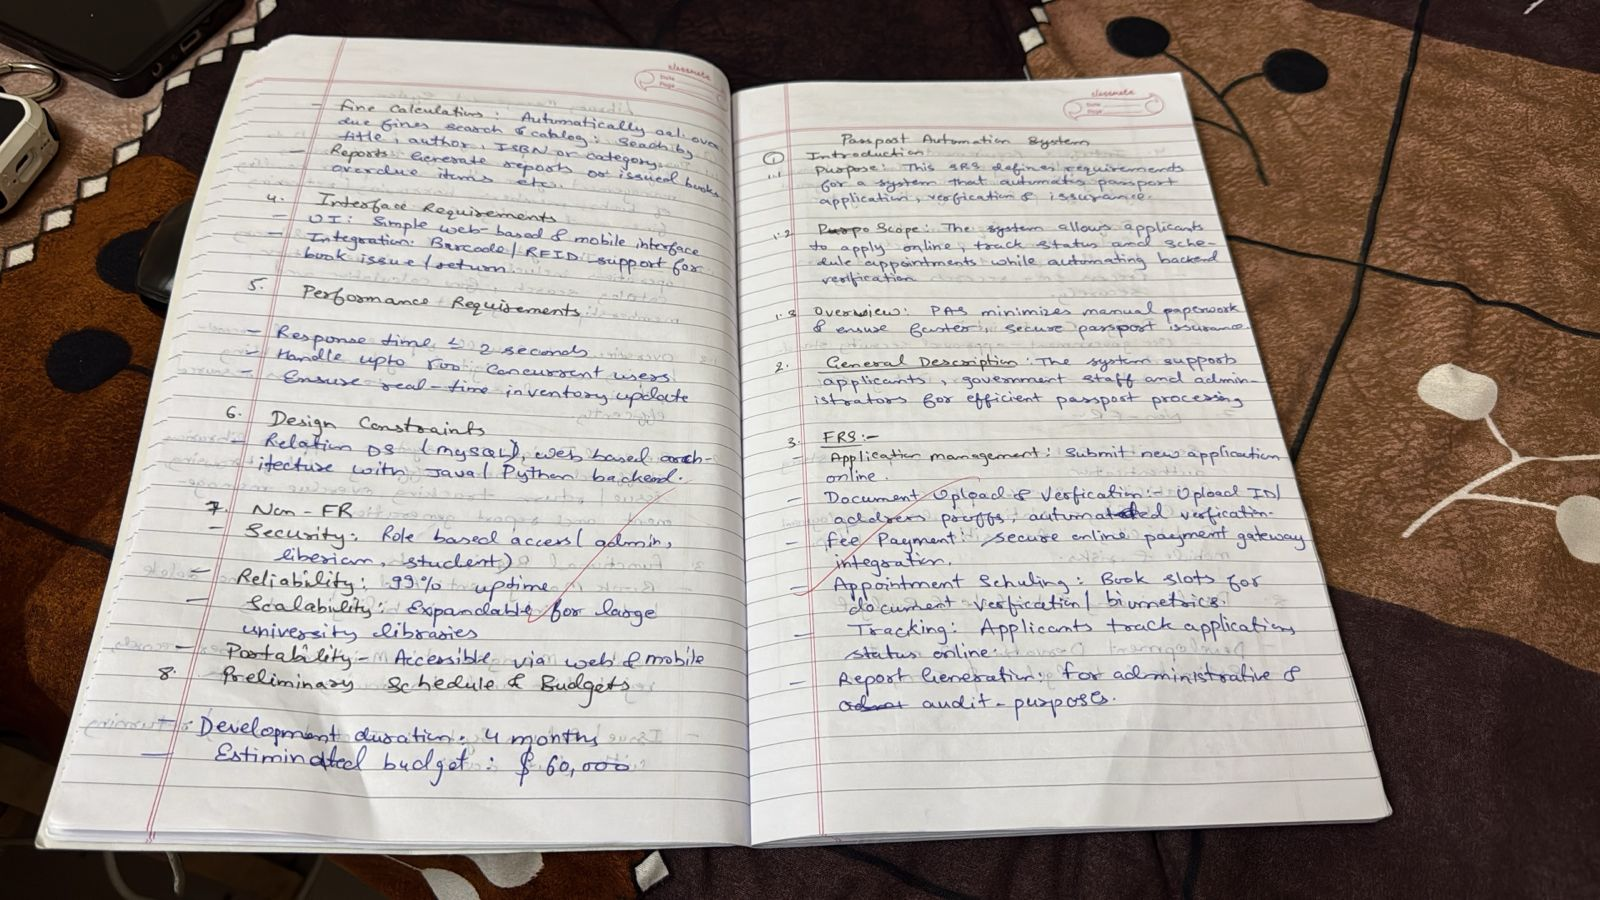 classmate
Date
Page
- Fine Calculations: Automatically cal. over
due fines search & catalog: Seach by
title, author, ISBN or category
- Reports: Generate reports os issued books
overdue items etc.
4. Interface Requirements
- UI: Simple web-based & mobile interface
- Integration: Barcode/RFID support for
book issue/return
5. Performance Requirements:
- Response time < 2 seconds
- Handle upto concurrent users
- Ensure real-time inventory update
6. Design Constraints
- Relation DS (MySQL), web based arch-
itecture with Java/Python backend.
7. Non-FR
- Security: Role based access(admin,
liberian, student)
- Reliability: 99% uptime
- Scalability: Expandable for large
university libraries
- Portability - Accessible via web & mobile
8. Preliminary Schedule & Budgets
- Development duration: 4 months
- Estiminated budget: $60,000
classmate
Date
Page
Passpost Automation System
1 Introduction
1.1 Purpose: This SRS defines requirements
for a system that automates passport
application, verfication & issurance.
1.2 Scope: The system allows applicants
to apply online, track status and sche-
dule appointments while automating backend
verification
1.3 Overview: PAS minimizes manual paperwork
& ensure faster, secure passport issurance
2. General Description: The system supports
applicants, government staff and admin-
istrators for efficient passport processing
3. FRS:-
Application management: Submit new application
online.
- Document Upload & Verfication:- Upload ID/
address prouffs, automated verfication.
- Fee Payment: secure online payment gateway
integration.
- Appointment Schuling: Book slots for
document verfication/biumetrics.
- Tracking: Applicants track applications
status online.
- Report Generation: for administrative &
audit-purposes.